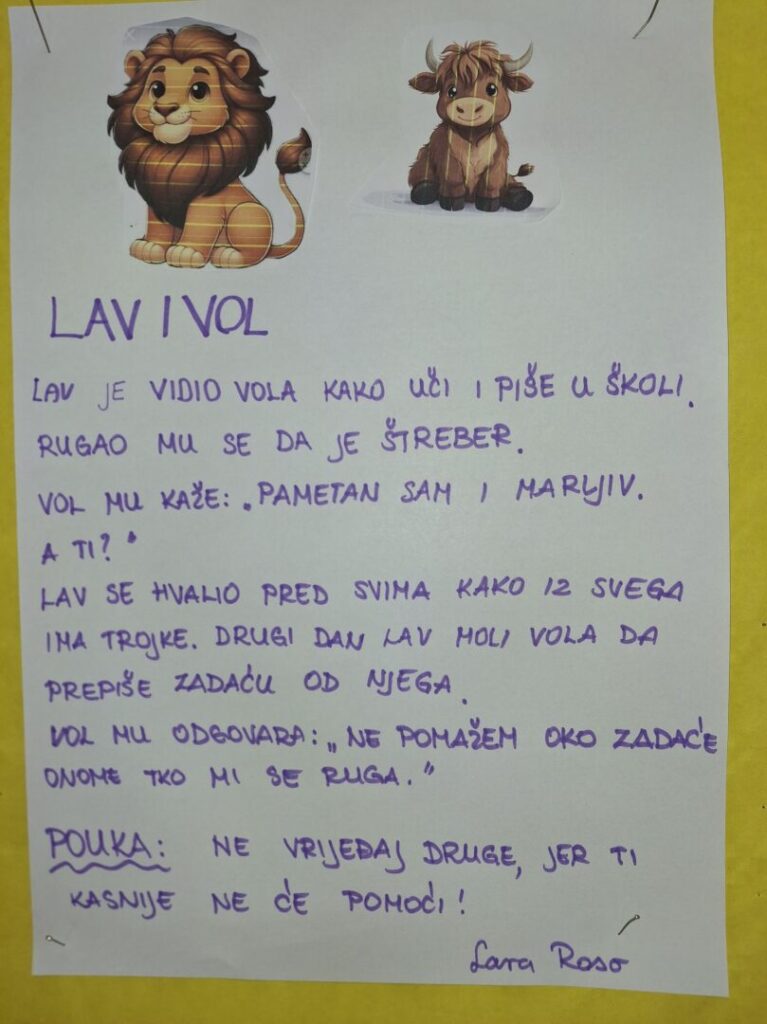 LAV I VOL
LAV JE VIDIO VOLA KAKO UČI I PIŠE U ŠKOLI.
RUGAO MU SE DA JE ŠTREBER.
VOL MU KAŽE: "PAMETAN SAM I MARLJIV.
A TI?"
LAV SE HVALIO PRED SVIMA KAKO IZ SVEGA
IMA TROJKE. DRUGI DAN LAV MOLI VOLA DA
PREPIŠE ZADAĆU OD NJEGA.
VOL MU ODGOVARA: „NE POMAŽEM OKO ZADAĆE
ONOME TKO MI SE RUGA.“
POUKA: NE VRIJEĐAJ DRUGE, JER TI
KASNIJE NE ĆE POMOĆI!
Lara Roso